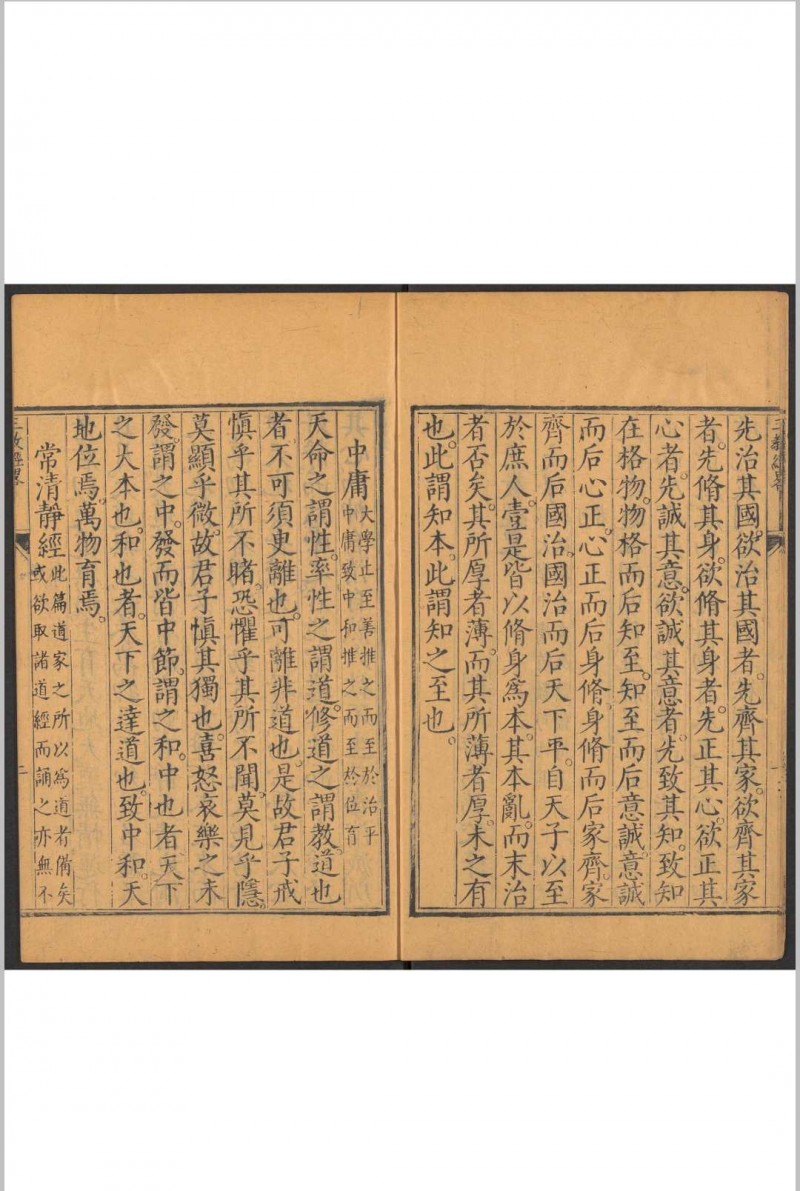 先治其國。欲治其國者。先齊其家。欲齊其家
者。先脩其身。欲脩其身者。先正其心。欲正其
心者。先誠其意。欲誠其意者。先致其知。致知
在格物。物格而后知至。知至而后意誠。意誠
而后心正。心正而后身脩。身脩而后家齊。家
齊而后國治。國治而后天下平。自天子以至
於庶人。壹是皆以脩身爲本。其本亂。而末治
者否矣。其所厚者薄。而其所薄者厚。未之有
也。此謂知本。此謂知之至也。
中庸
大學止至善推之而至於治平
中庸致中和推之而至於位育
天命之謂性。率性之謂道。修道之謂教。道也
者。不可須臾離也。可離非道也。是故君子戒
慎乎其所不睹。恐懼乎其所不聞。莫見乎隱。
莫顯乎微。故君子慎其獨也。喜怒哀樂之未
發。謂之中。發而皆中節。謂之和。中也者。天下
之大本也。和也者。天下之達道也。致中和。天
地位焉。萬物育焉。
常清靜經
此篇道家之所以爲道者備矣
或欲取諸道經而誦之亦無不
二